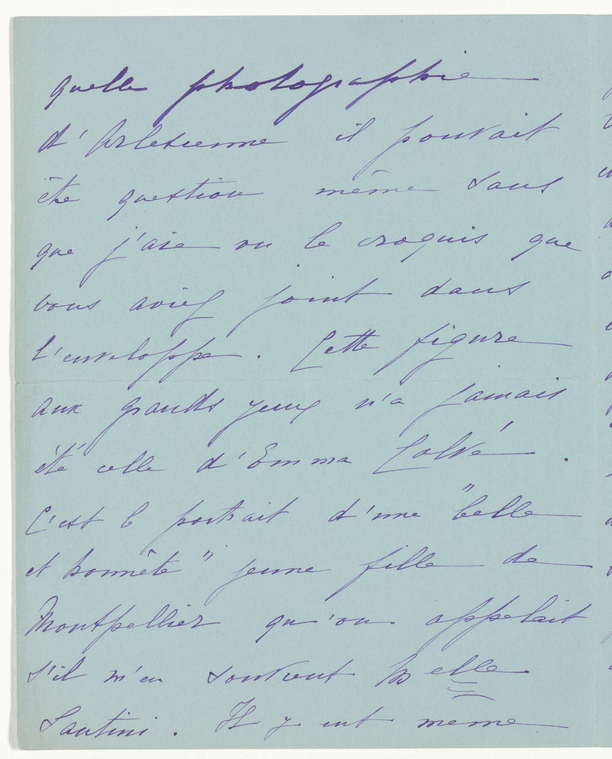 quelle photographie
d'Arlésienne il pouvait
être question même sans
que j'aie vu le croquis que
vous aviez joint dans
l'enveloppe. Cette figure
aux grands yeux n'a jamais
été celle d'Emma Calvé.
C'est le portrait d'une "belle
et honnête" jeune fille de
Montpellier qu'on appelait
s'il m'en souvient Melle
Santini. Il y eut même